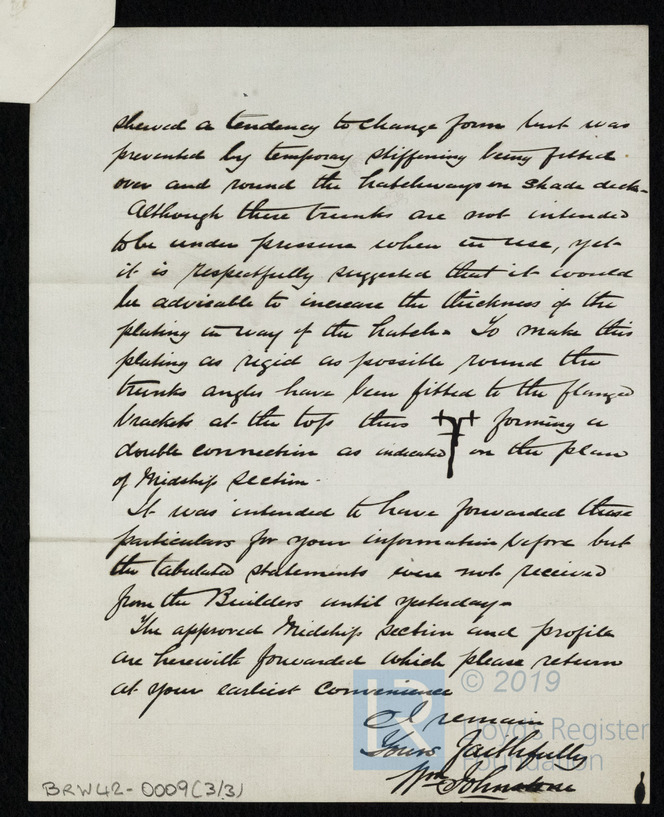 shewed a tendency to change form but was
prevented by temporary stiffening being fitted
over and round the hatchways on shade deck.
Although these trunks are not intended
to be under pressure when in use, yet
it is respectfully suggested that it would
be adviseable to increase the thickness of the
plating in way of the hatch. To make this
plating as rigid as possible round the
trunks angles have been fitted to the flanged
brackets at the tops thus forming a
double connection as indicated on the plan
of Midship section.
It was intended to have forwarded these
particulars for your information before but
the tabulated statements were not received
from the Builders until yesterday.
The approved Midship section and profile
are herewith forwarded which please return
at your earliest convenience
I remain
Yours Faithfully
Wm Johnstone
BRW42-0009(3/3)
© 2019
LR
Lloyd's Register
Foundation